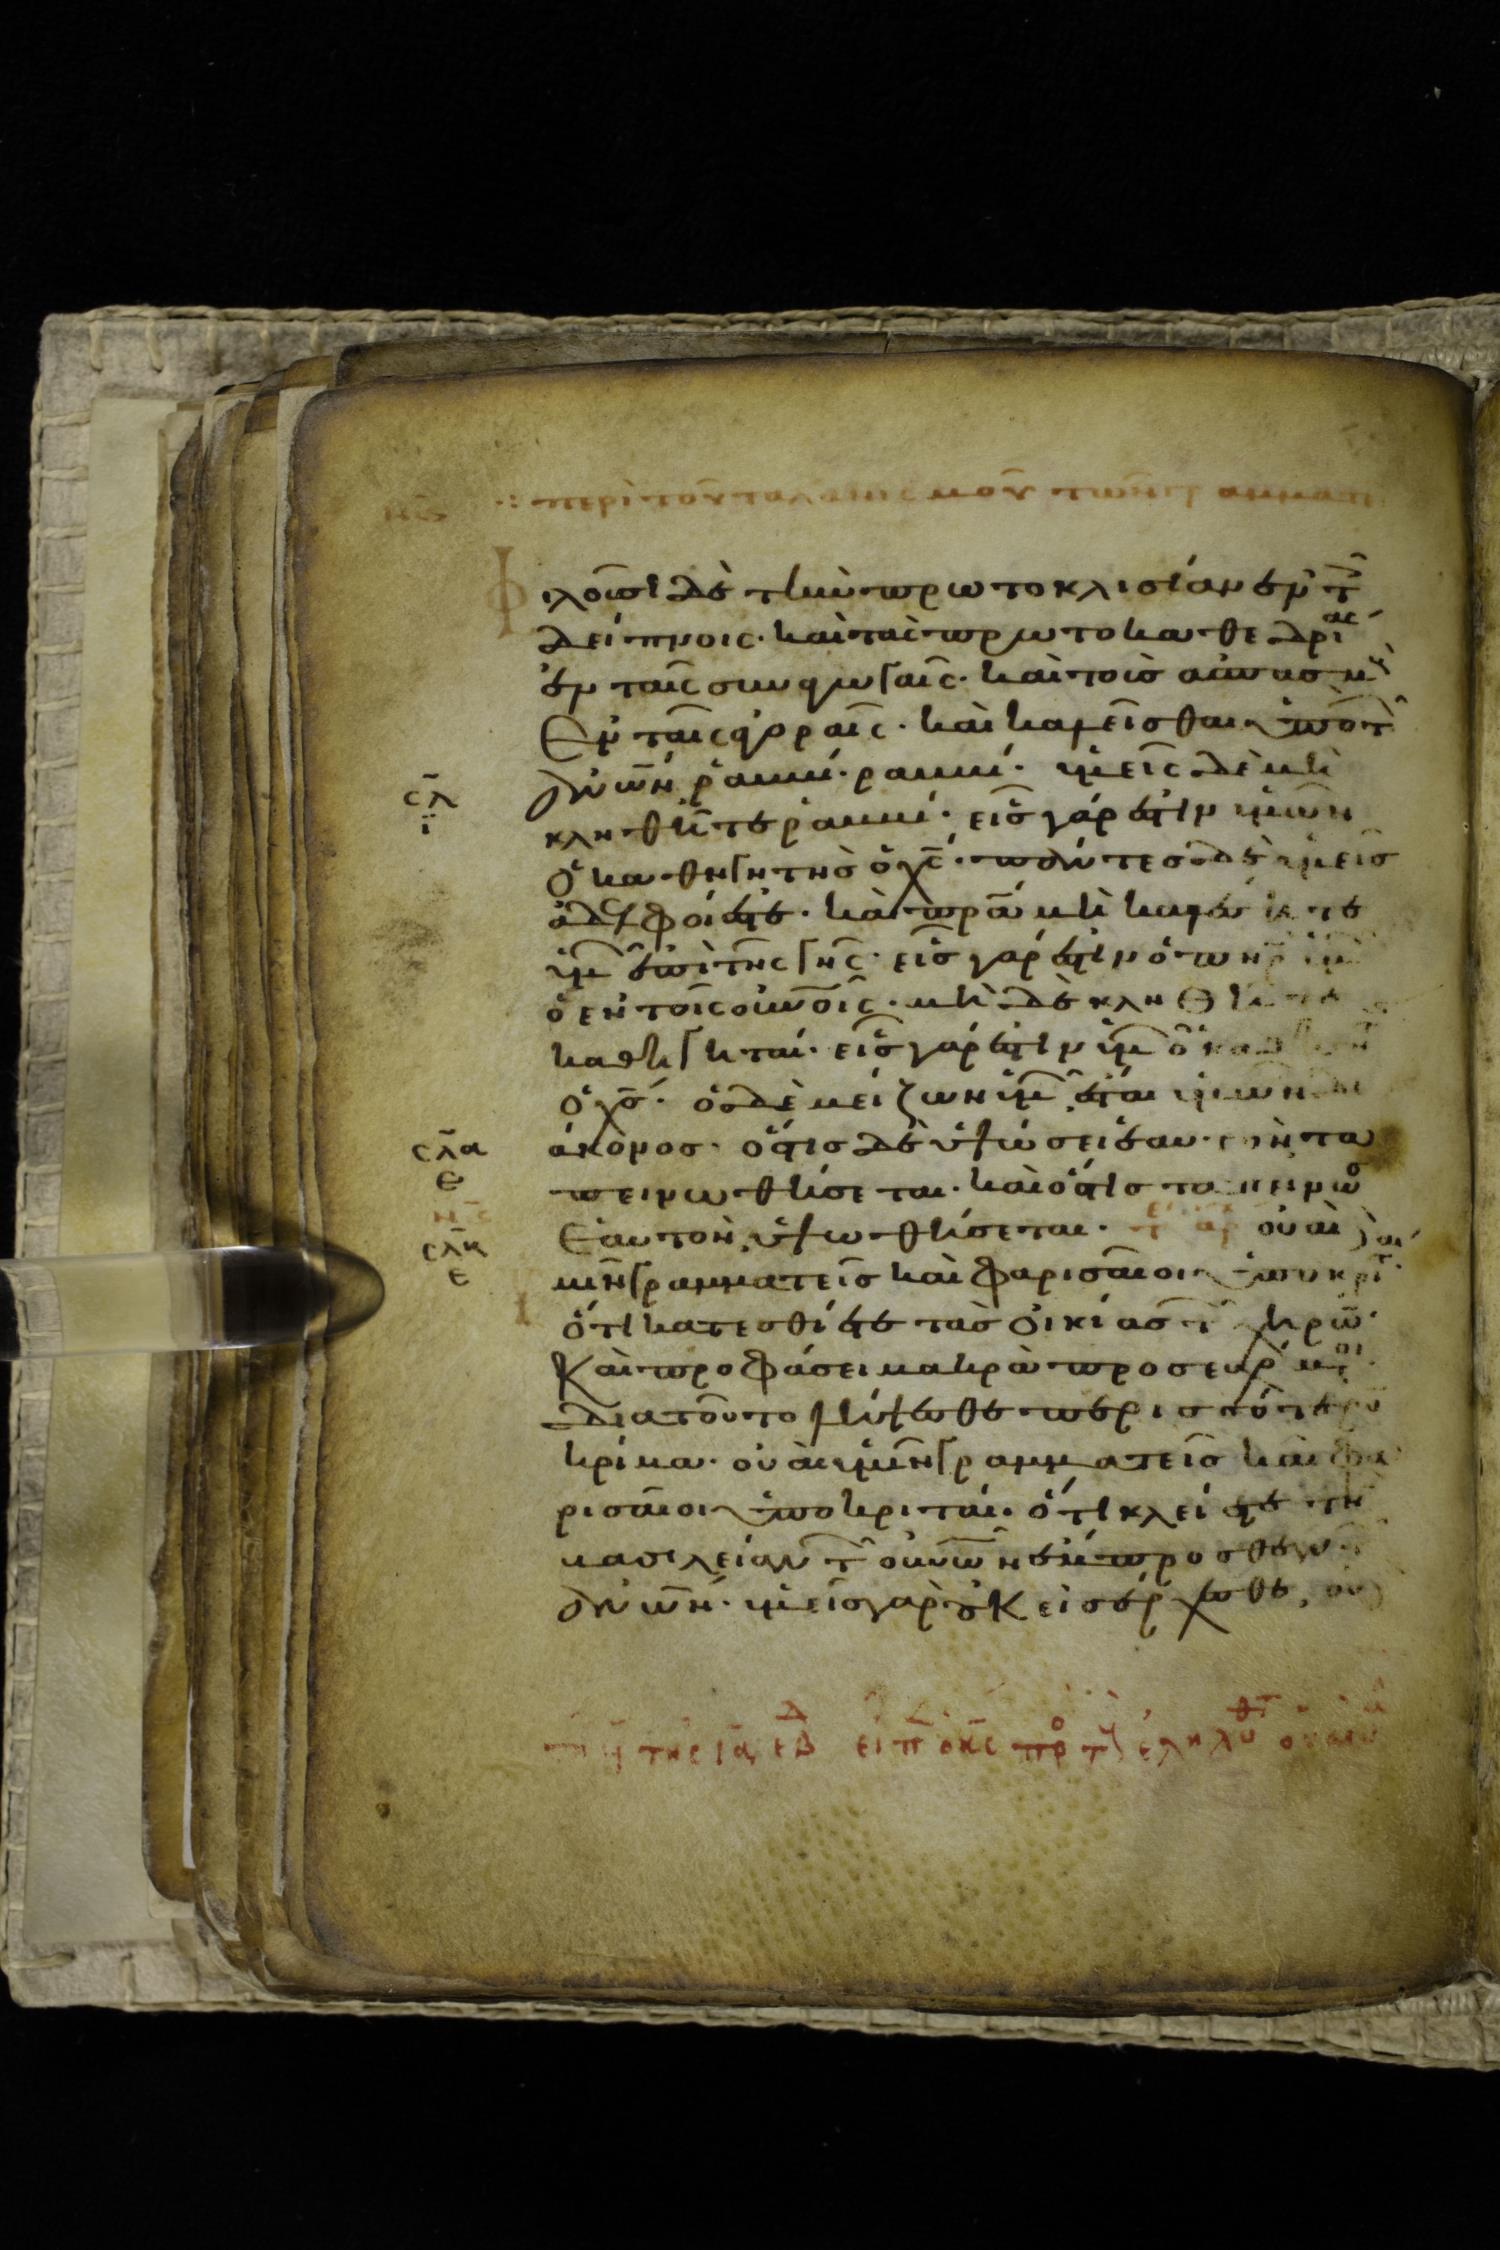 περὶ τοῦ ταλανισμοῦ τῶν γραμματ
Φιλοῦσι δὲ τὴν πρωτοκλισίαν ἐν τ
δείπνοις· καὶ τὰς πρωτοκαθεδρίας
ἐν ταῖς συναγωγαῖς· καὶ τοὺς ἀσπασμ
Ἐν ταῖς ἀγοραῖς· καὶ καλεῖσθαι ὑπὸ τ
ἀνων ῥαββί· ῥαββί· ὑμεῖς δὲ μὴ
σλ κληθῆτε ῥαββί· εἷς γάρ ἐστιν ὑμῶν
ι ὁ καθηγητὴς ὁ χς· πάντες δὲ ὑμεῖς
ἀδελφοί ἐστε· καὶ πρα μὴ καλέσητε
ὑμ ἐπὶ τῆς γῆς· εἷς γάρ ἐστιν ὁ πηρ ὑμ
ὁ ἐν τοῖς οὐνοῖς· μὴ δὲ κληθῆτε
καθηγηταί· εἷς γάρ ἐστιν ὑμ ὁ καθηγητ
ὁ χς· ὁ δὲ μείζων ὑμ ἔσται ὑμῶν δι
σλα άκονος· ὅστις δὲ ὑψώσει ἑαυτὸν τα
ε πεινωθήσεται· καὶ ὅστις ταπεινώ
Ἑαυτὸν ὑψωθήσεται· οὐαὶ δὲ
σλβ ὑμῖν γραμματεῖς καὶ φαρισαῖοι ὑποκριτ
ε ὅτι κατεσθίετε τὰς οἰκίας τ χηρῶ·
Καὶ προφάσει μακρὰ προσευχόμενοι·
διατοῦτο λήψεσθε περισσότερον
κρίμα· οὐαὶ ὑμῖν γραμματεῖς καὶ φα
ρισαῖοι ὑποκριταί· ὅτι κλείετε τὴν
βασιλείαν τ οὐνῶν ἔμπροσθεν τ
ἀνων· ὑμεῖς γὰρ οὐκ εἰσέρχεσθε, οὐ